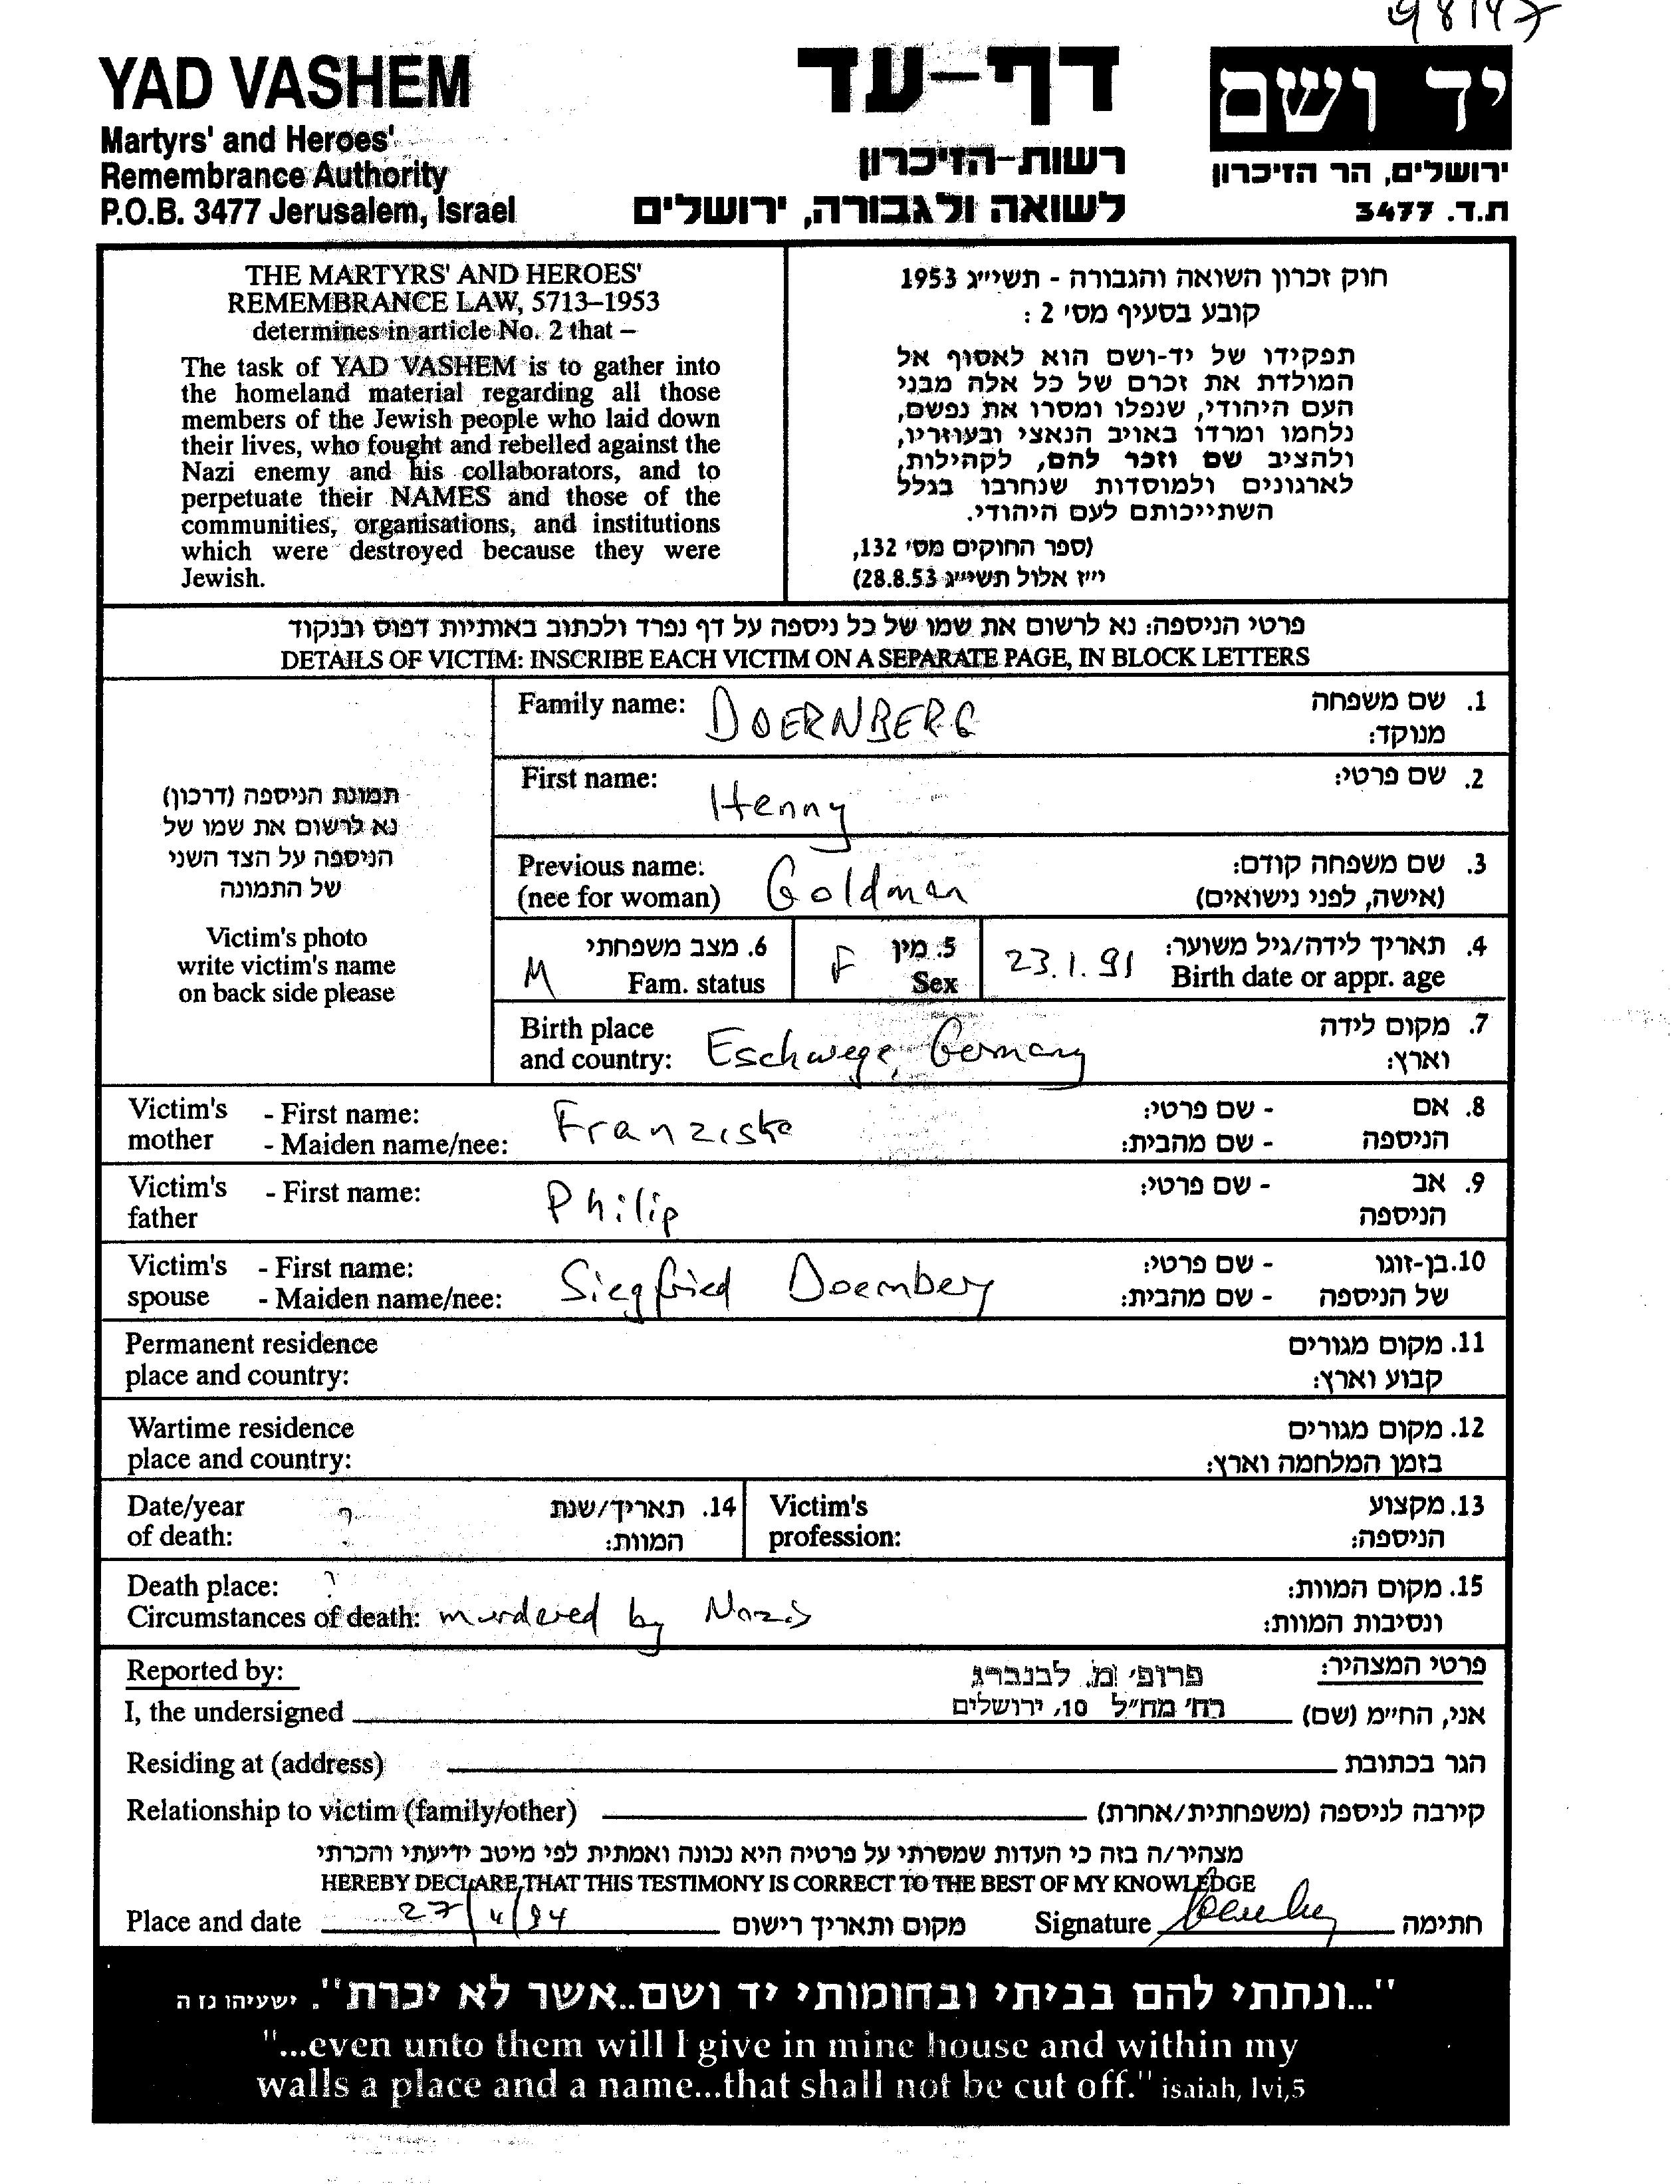 98147
YAD VASHEM
Martyrs' and Heroes'
Remembrance Authority
P.O.B. 3477 Jerusalem, Israel
דף-עד
רשות-הזיכרון
לשואה ולגבורה, ירושלים
יד ושם
ירושלים, הר הזיכרון
ת.ד. 3477
THE MARTYRS' AND HEROES'
REMEMBRANCE LAW, 5713–1953
determines in article No. 2 that –
The task of YAD VASHEM is to gather into
the homeland material regarding all those
members of the Jewish people who laid down
their lives, who fought and rebelled against the
Nazi enemy and his collaborators, and to
perpetuate their NAMES and those of the
communities, organisations, and institutions
which were destroyed because they were
Jewish.
חוק זכרון השואה והגבורה - תשי״ג 1953
קובע בסעיף מס׳ 2 :
תפקידו של יד-ושם הוא לאסוף אל
המולדת את זכרם של כל אלה מבני
העם היהודי, שנפלו ומסרו את נפשם,
נלחמו ומרדו באויב הנאצי ובעוזריו,
ולהציב שם וזכר להם, לקהילות,
לארגונים ולמוסדות שנחרבו בגלל
השתייכותם לעם היהודי.
(ספר החוקים מס׳ 132,
י״ז אלול תשי״ג 28.8.53)
פרטי הניספה: נא לרשום את שמו של כל ניספה על דף נפרד ולכתוב באותיות דפוס ובנקוד
DETAILS OF VICTIM: INSCRIBE EACH VICTIM ON A SEPARATE PAGE, IN BLOCK LETTERS
תמונת הניספה (דרכון)
נא לרשום את שמו של
הניספה על הצד השני
של התמונה
Victim's photo
write victim's name
on back side please
Family name: DOERNBERG 1. שם משפחה
מנוקד:
First name: Henny 2. שם פרטי:
Previous name: Goldman 3. שם משפחה קודם:
(nee for woman) (אישה, לפני נישואים)
M 6. מצב משפחתי F 5. מין 23.1.91 4. תאריך לידה/גיל משוער:
Fam. status Sex Birth date or appr. age
Birth place 7. מקום לידה
and country: Eschwege, Germany וארץ:
Victim's - First name: Franziska - שם פרטי: 8. אם
mother - Maiden name/nee: - שם מהבית: הניספה
Victim's - First name: Philip - שם פרטי: 9. אב
father הניספה
Victim's - First name: Siegfried Doernberg - שם פרטי: 10. בן-זוגו
spouse - Maiden name/nee: - שם מהבית: של הניספה
Permanent residence 11. מקום מגורים
place and country: קבוע וארץ:
Wartime residence 12. מקום מגורים
place and country: בזמן המלחמה וארץ:
Date/year ? 14. תאריך/שנת Victim's 13. מקצוע
of death: המוות: profession: הניספה:
Death place: ? 15. מקום המוות:
Circumstances of death: murdered by Nazis ונסיבות המוות:
Reported by: פרופ׳ מ. לבנברג פרטי המצהיר:
I, the undersigned רח׳ מח״ל 10, ירושלים אני, הח״מ (שם)
Residing at (address) הגר בכתובת
Relationship to victim (family/other) קירבה לניספה (משפחתית/אחרת)
מצהיר/ה בזה כי העדות שמסרתי על פרטיה היא נכונה ואמתית לפי מיטב ידיעתי והכרתי
HEREBY DECLARE THAT THIS TESTIMONY IS CORRECT TO THE BEST OF MY KNOWLEDGE
Place and date 27/4/94 מקום ותאריך רישום Signature חתימה
"...ונתתי להם בביתי ובחומותי יד ושם..אשר לא יכרת". ישעיהו נז ה
"...even unto them will I give in mine house and within my
walls a place and a name...that shall not be cut off." isaiah, lvi,5